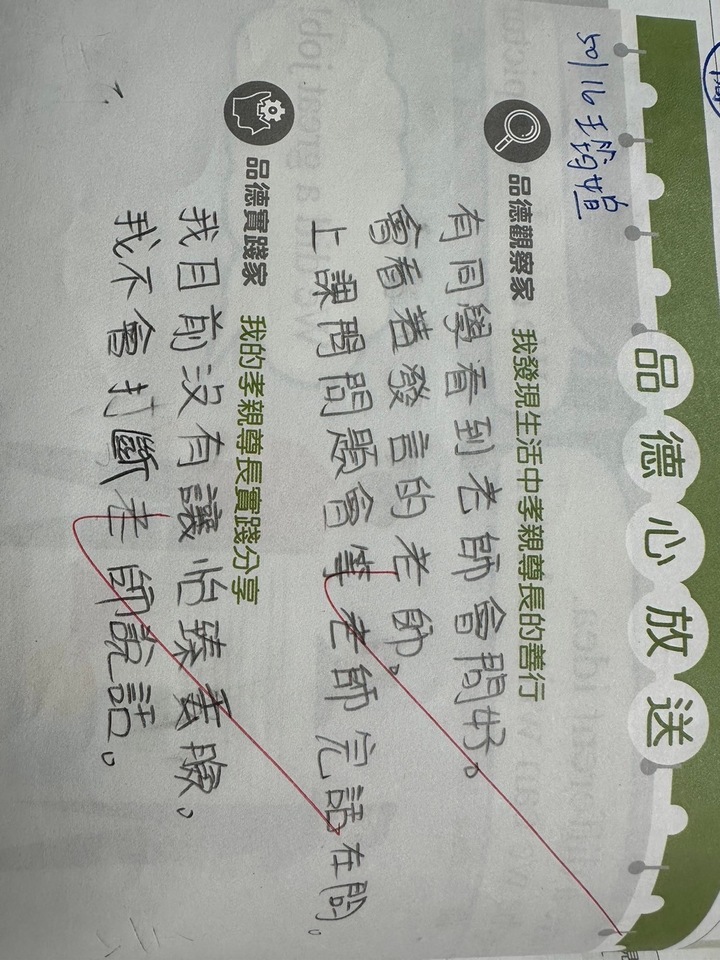 品德心放送
50116 王筠媗
品德觀察家 我發現生活中孝親尊長的善行
有同學看到老師會問好。
會看著發言的老師。
上課問問題會等老師完話在問。
品德實踐家 我的孝親尊長實踐分享
我目前沒有讓怡臻丟臉。
我不會打斷老師說話。